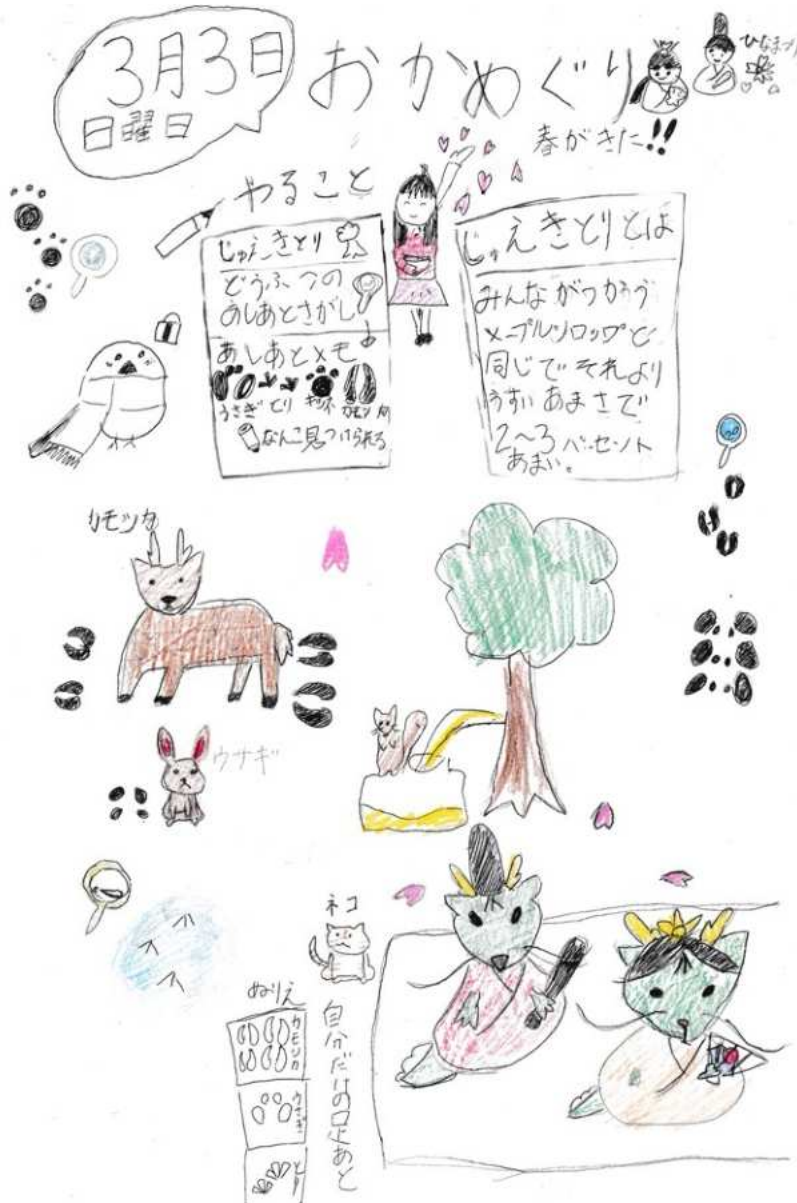 3月3日
日曜日
おかめぐり
ひなまつり
春がきた!!
やること
じゅえきとり
どうぶつの
あしあとさがし
あしあとメモ
うさぎ とり キツネ カモシカ
なんこ見つけられる
じゅえきとりとは
みんながつかう
メープルシロップと
同じでそれより
うすいあまさで
2~3パーセント
あまい。
カモシカ
ウサギ
ネコ
ぬりえ
カモシカ
うさぎ
とり
自分だけの足あと